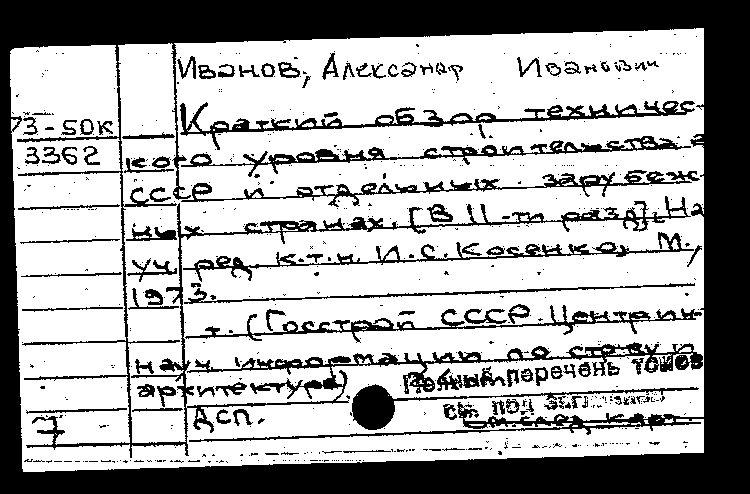 Иванов, Александр Иванович
73-50к Краткий обзор техничес-
3362 кого уровня строительства в
СССР и отдельных зарубеж-
ных странах. [В 11-ти разд]. На-
уч. ред. к.т.н. И.С. Косенко, М.,
1973.
т. (Госстрой СССР. Центр ин-
науч. информации по стр-ву и
архитектуре)
Полный перечень томов
см. под заглавием
ДСП.
См. след. карт.
7